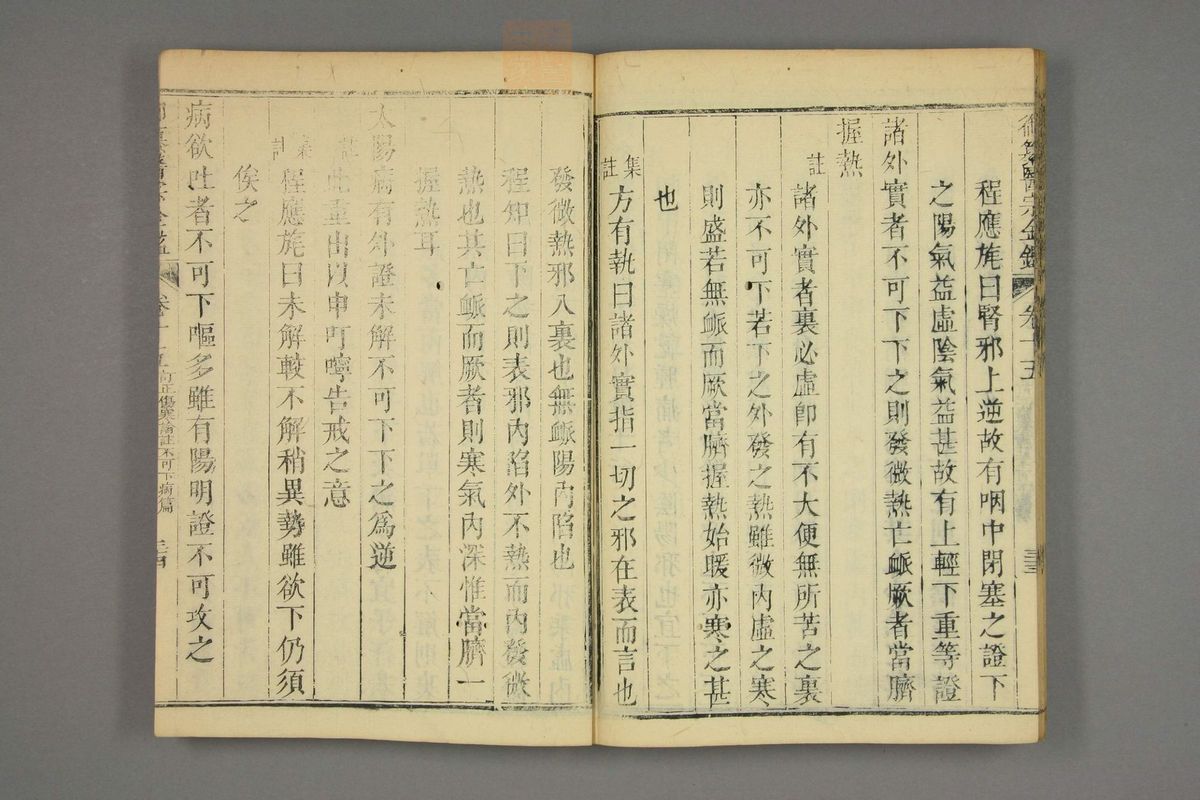 御纂醫宗金鑑 卷十五 三三
程應旄曰腎邪上逆故有咽中閉塞之證下
之陽氣益虛陰氣益甚故有上輕下重等證
諸外實者不可下下之則發微熱亡脈厥者當臍
握熱
註
諸外實者裏必虛卽有不大便無所苦之裏
亦不可下若下之外發之熱雖微內虛之寒
則盛若無脈而厥當臍握熱始暖亦寒之甚
也
集註
方有執曰諸外實指一切之邪在表而言也
發微熱邪入裏也無脈陽內陷也
程知曰下之則表邪內陷外不熱而內發微
熱也其亡脈而厥者則寒氣內深惟當臍一
握熱耳
太陽病有外證未解不可下下之爲逆
註
此重出以申叮嚀告戒之意
集註
程應旄曰未解較不解稍異勢雖欲下仍須
俟之
病欲吐者不可下嘔多雖有陽明證不可攻之
卷十五 訂正傷寒論註不可下病篇